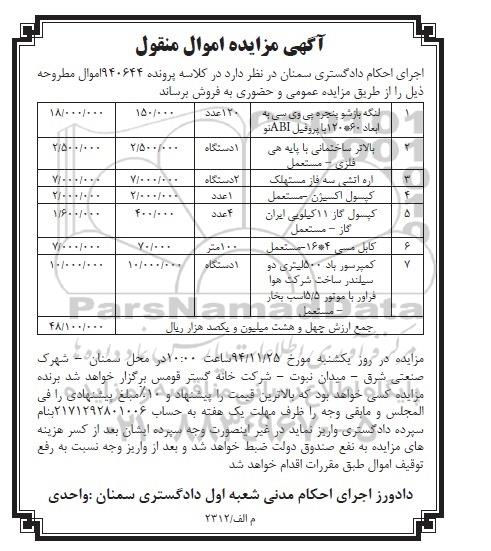 آگهی مزایده اموال منقول
اجرای احکام دادگستری سمنان در نظر دارد در کلاسه پرونده ۹۴۰۶۴۴اموال مطروحه
ذیل را از طریق مزایده عمومی و حضوری به فروش برساند
۱ لنگه بازشو پنجره پی وی سی به ۱۲۰عدد ۱۵۰/۰۰۰ ۱۸/۰۰۰/۰۰۰
ابعاد ۶۰*۱۲۰با پروفیل ABIنو
۲ بالاتر ساختمانی با پایه هی ۱دستگاه ۲/۵۰۰/۰۰۰ ۲/۵۰۰/۰۰۰
فلزی – مستعمل
۳ اره آتشی سه فاز مستهلک ۲دستگاه ۷/۰۰۰/۰۰۰ ۷/۰۰۰/۰۰۰
۴ کپسول اکسیژن –مستعمل ۱عدد ۲/۰۰۰/۰۰۰ ۲/۰۰۰/۰۰۰
۵ کپسول گاز ۱۱کیلویی ایران ۴عدد ۴۰۰/۰۰۰ ۱/۶۰۰/۰۰۰
گاز – مستعمل
۶ کابل مسی ۴*۱۶–مستعمل ۱۰۰متر ۷۰/۰۰۰ ۷/۰۰۰/۰۰۰
۷ کمپرسور باد ۵۰۰لیتری دو ۱دستگاه ۱۰/۰۰۰/۰۰۰ ۱۰/۰۰۰/۰۰۰
سیلندر ساخت شرکت هوا
فراور با موتور ۵/۵اسب بخار
– مستعمل
جمع ارزش چهل و هشت میلیون و یکصد هزار ریال ۴۸/۱۰۰/۰۰۰
مزایده در روز یکشنبه مورخ ۹۴/۱۱/۲۵ساعت ۱۰:۰۰در محل سمنان – شهرک
صنعتی شرق – میدان نبوت – شرکت خانه گستر قومس برگزار خواهد شد برنده
مزایده کسی خواهد بود که بالاترین قیمت را پیشنهاد و ۱۰٪مبلغ پیشنهادی را فی
المجلس و مابقی وجه را ظرف مهلت یک هفته به حساب ۲۱۷۱۲۹۲۸۰۱۰۰۶بنام
سپرده دادگستری واریز نماید در غیر اینصورت وجه سپرده ایشان بعد از کسر هزینه
های مزایده به نفع صندوق دولت ضبط خواهد شد و بعد از واریز وجه نسبت به رفع
توقیف اموال طبق مقررات اقدام خواهد شد
دادورز اجرای احکام مدنی شعبه اول دادگستری سمنان :واحدی
م الف/۲۳۱۲
ParsNamadData